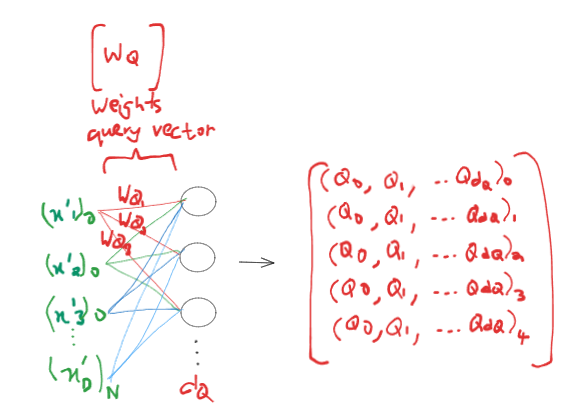 [W_Q]
Weights
query vector
W_Q₁
W_Q₂
W_Q₃
(x'1)_0
(x'2)_0
(x'3)_0
⋮
(x'_D)_N
⋮
d_Q
(Q_0, Q_1, ... Q_dQ)_0
(Q_0, Q_1, ... Q_dQ)_1
(Q_0, Q_1, ... Q_dQ)_2
(Q_0, Q_1, ... Q_dQ)_3
(Q_0, Q_1, ... Q_dQ)_4